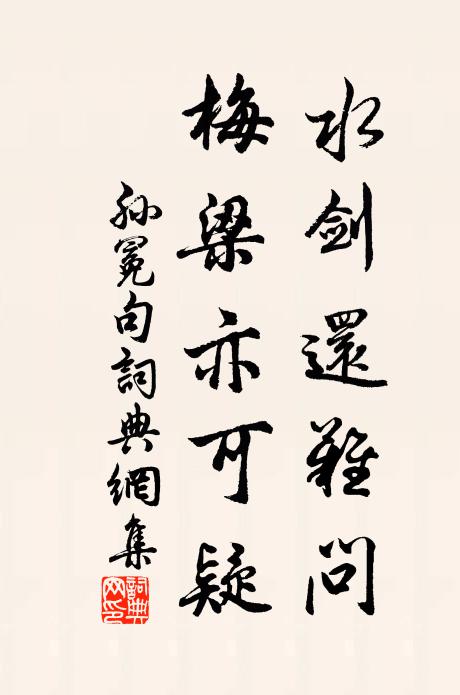 水劍還難問
梅梁亦可疑
孫冕句詞典網集
詞典网印